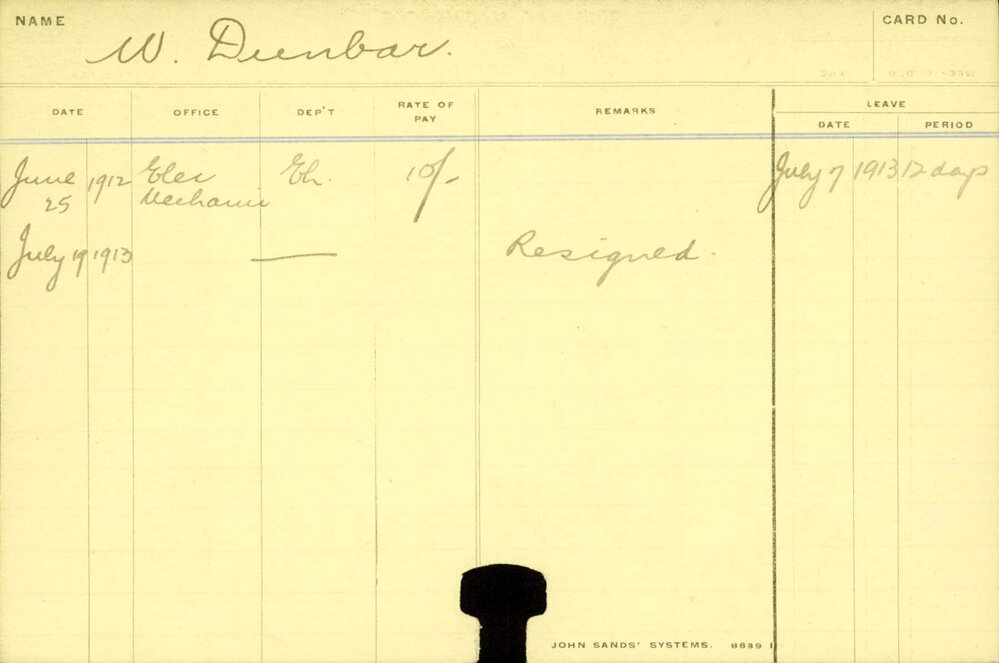 NAME
W. Dunbar.
CARD No.
DATE
OFFICE
DEP'T
RATE OF PAY
REMARKS
LEAVE
DATE
PERIOD
June 25 1912 Elec Mechanic El. 10/- July 7 1913 12 days
July 19 1913 — Resigned.
JOHN SANDS' SYSTEMS. 8639